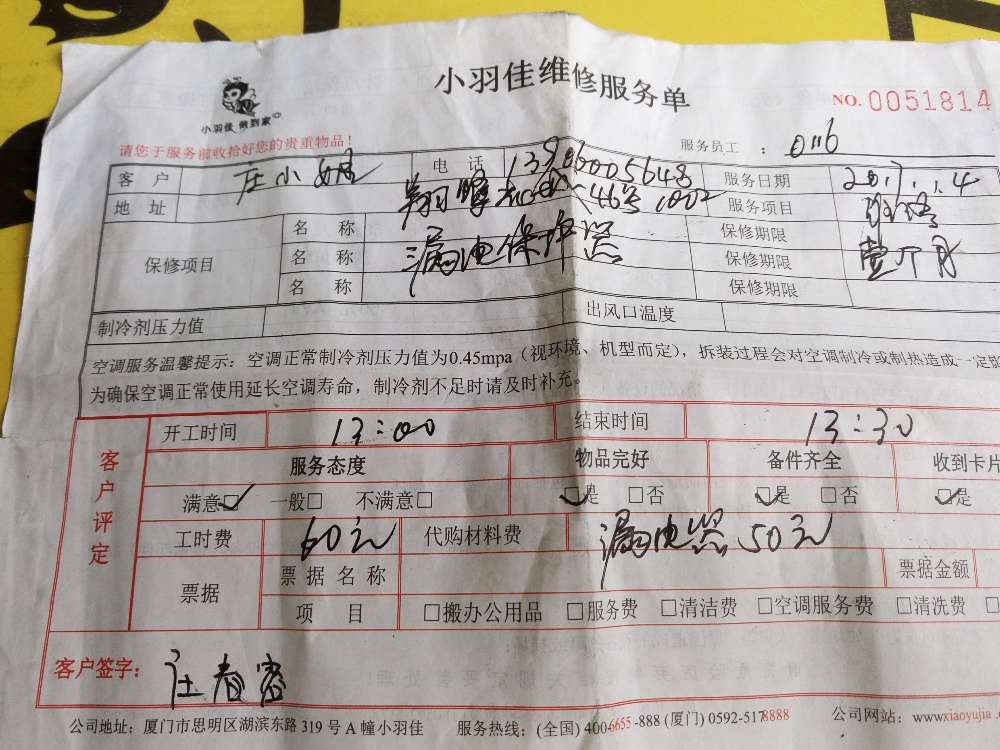 小羽佳维修服务单
NO. 0051814
小羽佳 做到家
请您于服务前收拾好您的贵重物品!
服务员工: 016
客户 庄小姐 电话 服务日期
地址 46号1002 服务项目
名称 保修期限
保修项目 名称 漏电保护器 保修期限 壹个月
名称 保修期限
制冷剂压力值 出风口温度
空调服务温馨提示: 空调正常制冷剂压力值为0.45mpa(视环境、机型而定), 拆装过程会对空调制冷或制热造成一定
为确保空调正常使用延长空调寿命, 制冷剂不足时请及时补充。
客户评定
开工时间 13:00 结束时间 13:30
服务态度 物品完好 备件齐全 收到卡片
满意☑ 一般□ 不满意□ ☑是 □否 ☑是 □否 ☑是
工时费 60元 代购材料费 漏电器50元
票据 票据名称 票据金额
项目 □搬办公用品 □服务费 □清洁费 □空调服务费 □清洗费
客户签字: 庄春容
公司地址: 厦门市思明区湖滨东路319号A幢小羽佳 服务热线: (全国) 400-6655-888 (厦门) 0592-5178888 公司网站: www.xiaoyujia.